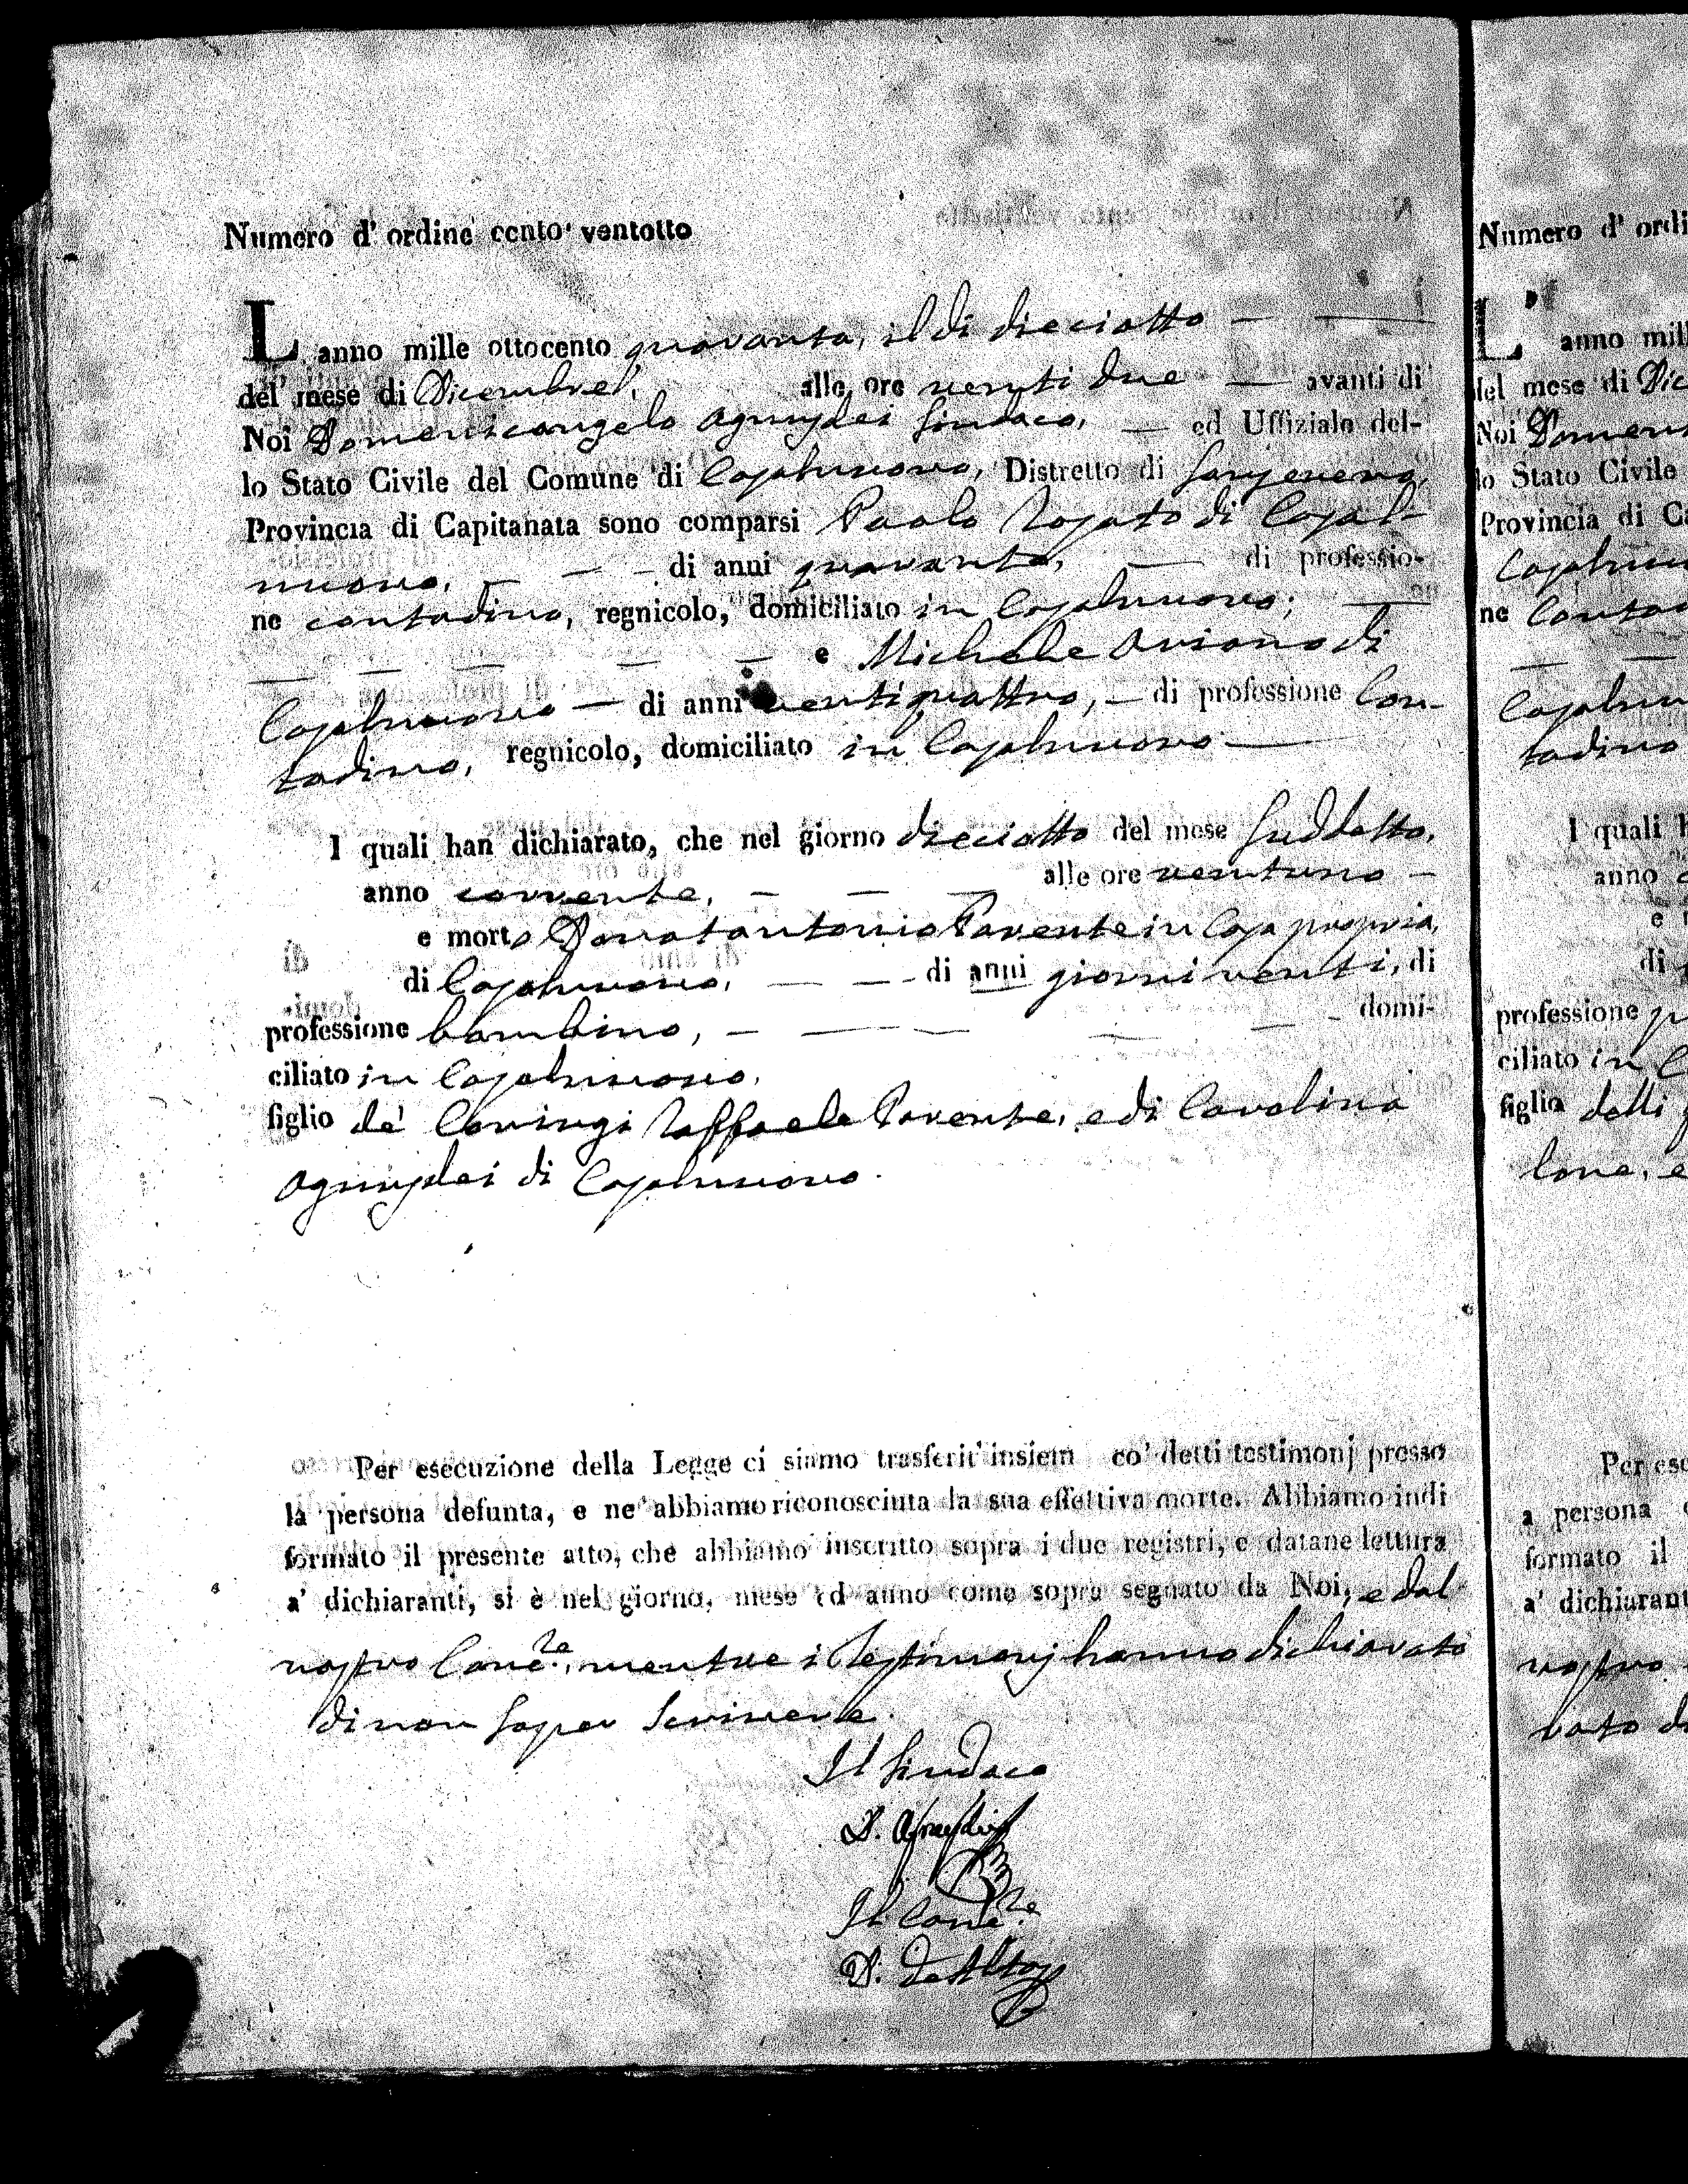 Numero d' ordine cento ventotto
L' anno mille ottocento quaranta, il di dieciotto
del mese di Dicembre, alle ore venti due avanti di
Noi Domenicangelo Agnusdei Sindaco, ed Uffiziale del-
lo Stato Civile del Comune di Casalnuovo, Distretto di Sansevero,
Provincia di Capitanata sono comparsi Paolo Rosato di Casal-
nuovo, di anni quaranta, di professio-
ne contadino, regnicolo, domiciliato in Casalnuovo;
e Michele Orsano di
Casalnuovo di anni ventiquattro, di professione Con-
tadino, regnicolo, domiciliato in Casalnuovo
I quali han dichiarato, che nel giorno dieciotto del mese suddetto,
anno corrente, alle ore ventuno
e morto Donatantonio Parente in Casa propria,
di Casalnuovo, di anni giorni venti, di
professione bambino, domi-
ciliato in Casalnuovo,
figlio de' Coniugi Raffaele Parente, e di Carolina
Agnusdei di Casalnuovo.
Per esecuzione della Legge ci siamo trasferit' insiem co' detti testimonj presso
la persona defunta, e ne' abbiamo riconosciuta la sua effettiva morte. Abbiamo indi
formato il presente atto, che abbiamo inscritto sopra i due registri, e datane lettura
a' dichiaranti, si è nel giorno, mese ed anno come sopra segnato da Noi, e dal
nostro Canc.re, mentre i Testimonj hanno dichiarato
di non saper Scrivere.
Il Sindaco
D. Agnusdei
Il Canc.re
D.
Numero d' ordi
L' anno mil
del mese di Dic
Noi Domeni
lo Stato Civile
Provincia di Ca
Casalnuo
ne Contad
Casalnu
tadino
I quali h
anno
e
di
professione
ciliato in C
figlia delli
lone, e
Per ese
a persona
formato il
a' dichiarant
nostro
rato di